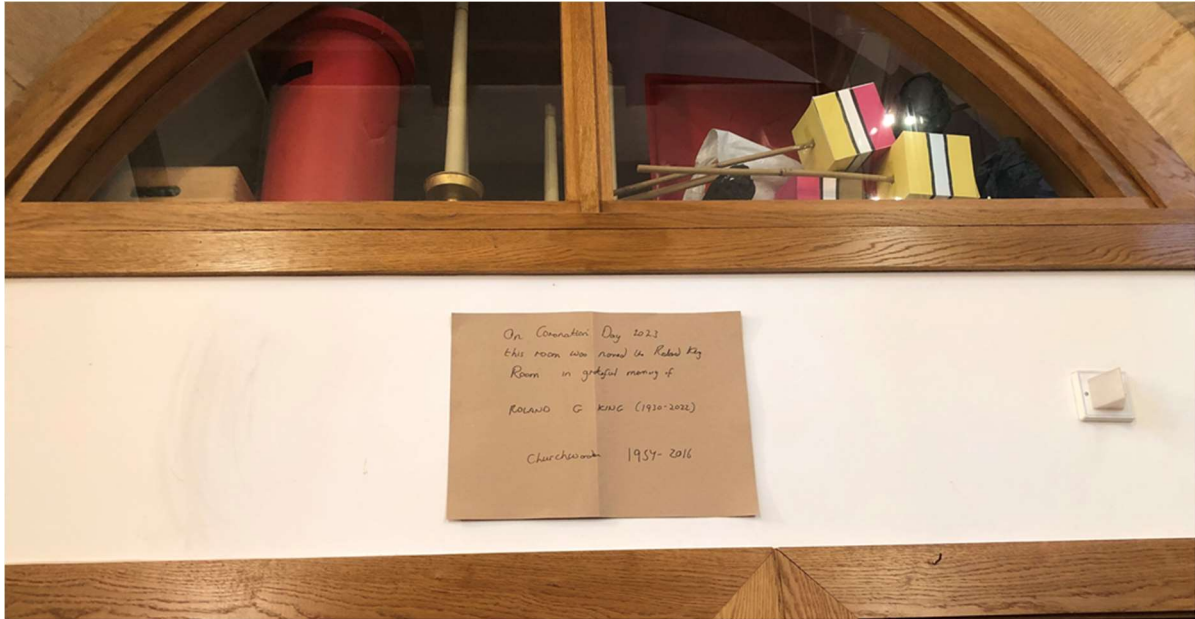 On Coronation Day 2023
this room was named the Roland King
Room in grateful memory of
ROLAND G KING (1930-2022)
Churchwarden 1954-2016